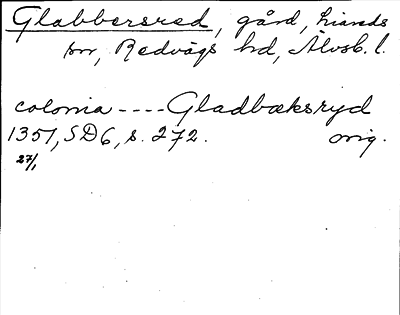 Glabbersred, gård, Liareds
sn, Redvägs hd, Älvsb. l.
colonia ---- Gladbæksryd
1351, SD6, s. 272. orig.
27/1